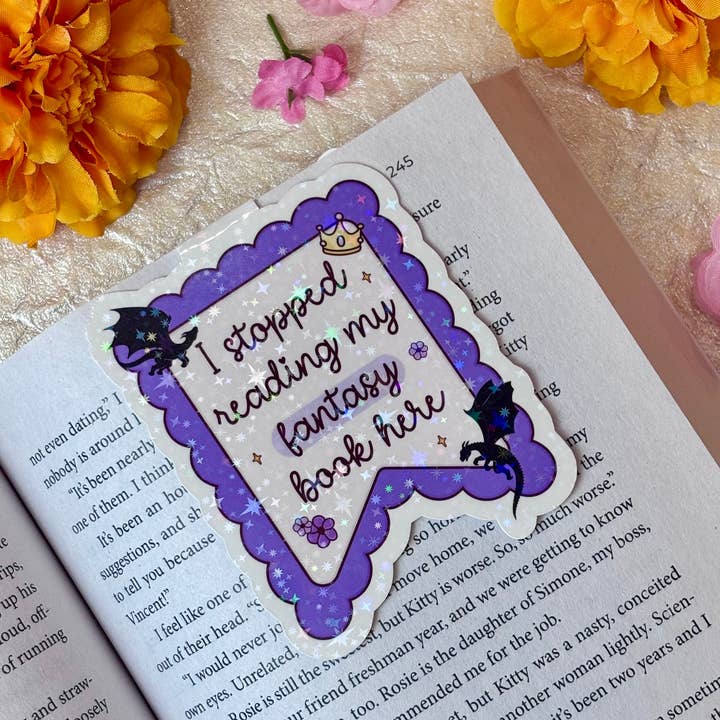 245
I stopped
reading my
fantasy
book here
sure
arly
t.”
ting
got
itty
ing
my
the
not even dating,” I
nobody is around
“It’s been nearly
one of them. I think
It’s been an hor
suggestions, and sh
to tell you because
Vincent!”
I feel like one of
out of their head. “S
“I would never jo
own eyes. Unrelated,
Rosie is still the
so much worse.”
ng so hor
move home, we
, but Kitty is worse. So,
ur friend freshman year, and we were getting to know
, too. Rosie is the daughter of Simone, my boss,
mmended me for the job.
et, but Kitty was a nasty, conceited
another woman lightly. Scien-
t’s been two years and I
sometim
rips,
up his
loud, off-
of running
and straw-
loosely